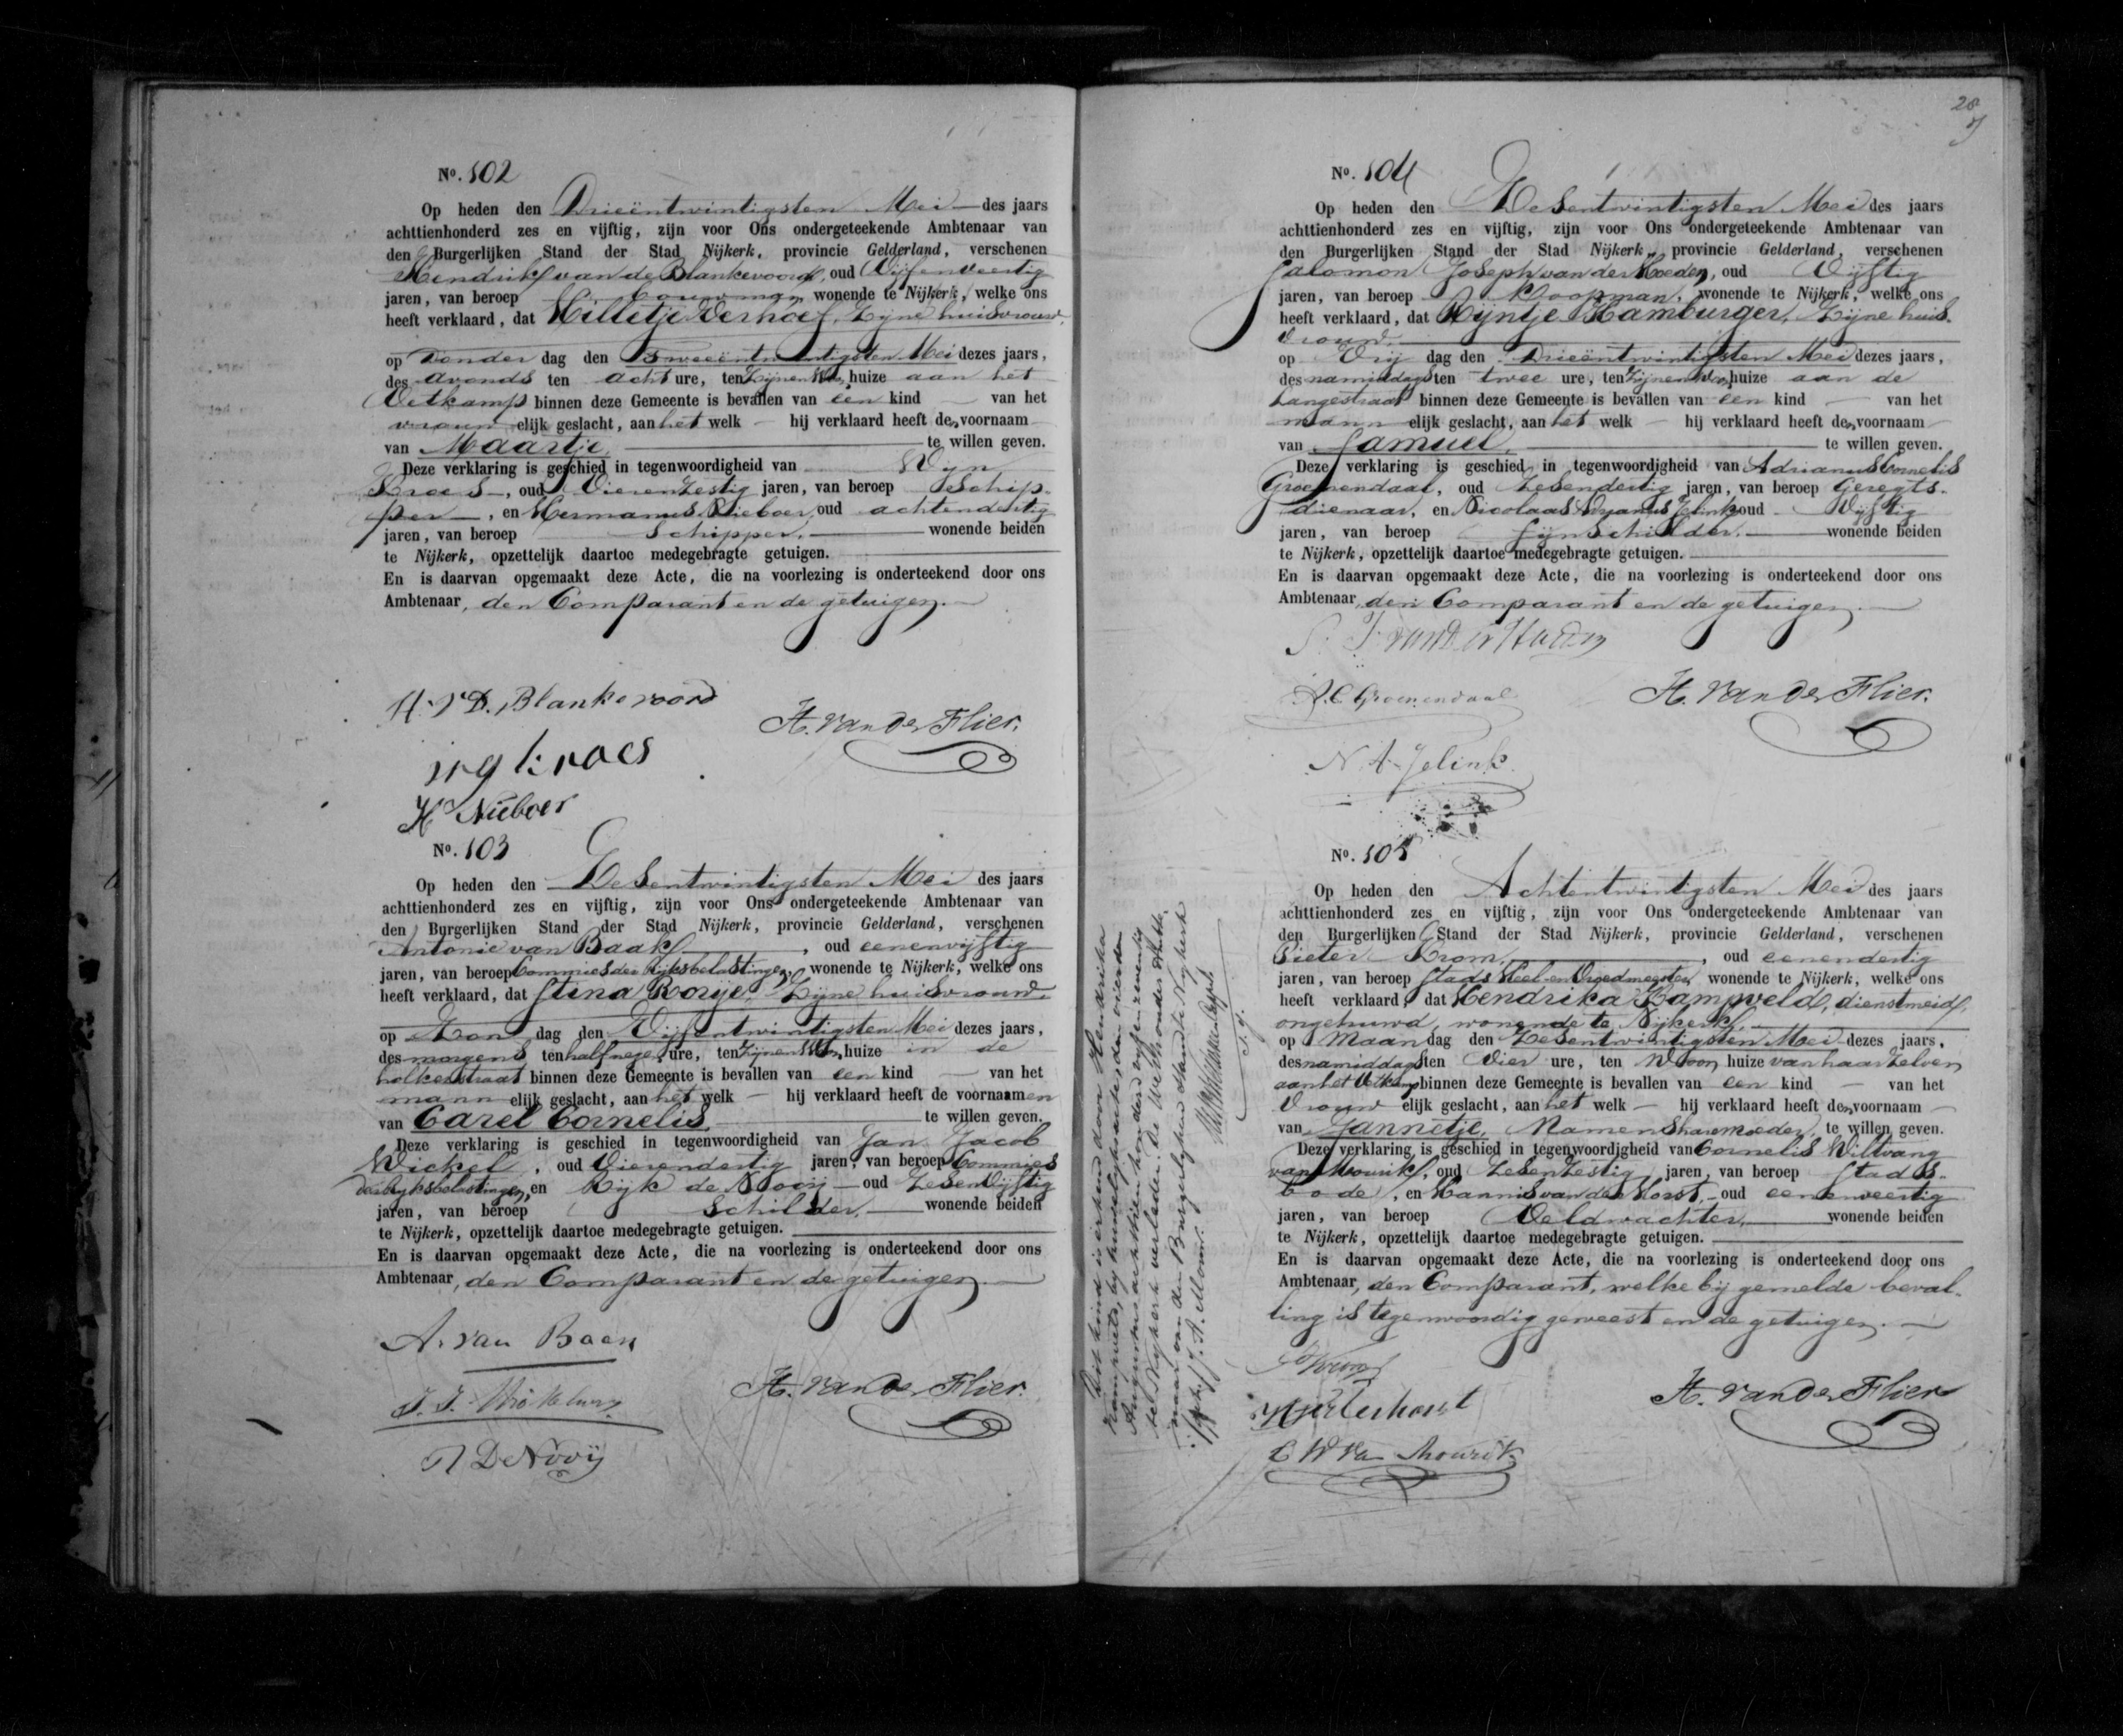 No. 102
Op heden den Drieëntwintigsten Mei des jaars
achttienhonderd zes en vijftig, zijn voor Ons ondergeteekende Ambtenaar van
den Burgerlijken Stand der Stad Nijkerk, provincie Gelderland, verschenen
Hendrik van de Blankevoord, oud Vijfenveertig
jaren, van beroep bouwman wonende te Nijkerk, welke ons
heeft verklaard, dat Willetje Verhoef, Zijne huisvrouw,
op Donder dag den Tweeëntwintigsten Mei dezes jaars,
des avonds ten acht ure, ten Zijnen huize aan het
Vetkamp binnen deze Gemeente is bevallen van een kind — van het
vrouw elijk geslacht, aan het welk — hij verklaard heeft den voornaam
van Maartje, te willen geven.
Deze verklaring is geschied in tegenwoordigheid van Wijn
Kroes, oud Vierenzestig jaren, van beroep Schip-
per, en Hermanus Nieboer, oud achtendertig
jaren, van beroep Schipper, wonende beiden
te Nijkerk, opzettelijk daartoe medegebragte getuigen.
En is daarvan opgemaakt deze Acte, die na voorlezing is onderteekend door ons
Ambtenaar, den Comparant en de getuigen.
H. v D. Blankevoord
H. van der Flier.
kroes
H Nieboer
No. 103
Op heden den Zesentwintigsten Mei des jaars
achttienhonderd zes en vijftig, zijn voor Ons ondergeteekende Ambtenaar van
den Burgerlijken Stand der Stad Nijkerk, provincie Gelderland, verschenen
Antonie van Baak, oud eenenvijftig
jaren, van beroep Commies der Rijksbelastingen, wonende te Nijkerk, welke ons
heeft verklaard, dat Stina Rorije, Zijne huisvrouw,
op Zon dag den Vijfentwintigsten Mei dezes jaars,
des morgens ten half negen ure, ten Zijnen huize in de
holkerstraat binnen deze Gemeente is bevallen van een kind — van het
mann elijk geslacht, aan het welk — hij verklaard heeft de voornaamen
van Carel Cornelis, te willen geven.
Deze verklaring is geschied in tegenwoordigheid van Jan Jacob
Wickel, oud Vierendertig jaren, van beroep Commies
der Rijksbelastingen, en Rijk de Nooij oud Zesenvijftig
jaren, van beroep Schilder, wonende beiden
te Nijkerk, opzettelijk daartoe medegebragte getuigen.
En is daarvan opgemaakt deze Acte, die na voorlezing is onderteekend door ons
Ambtenaar, den Comparant en de getuigen.
A. van Baak
H. van der Flier.
J. J.
R De Nooij
28
No. 104
Op heden den Zesentwintigsten Mei des jaars
achttienhonderd zes en vijftig, zijn voor Ons ondergeteekende Ambtenaar van
den Burgerlijken Stand der Stad Nijkerk, provincie Gelderland, verschenen
Salomon Joseph van der Hoeden, oud Vijftig
jaren, van beroep Koopman, wonende te Nijkerk, welke ons
heeft verklaard, dat Wijntje Hamburger, Zijne huis-
vrouw,
op Vrij dag den Drieëntwintigsten Mei dezes jaars,
des namiddags ten twee ure, ten Zijnen huize aan de
Langestraat binnen deze Gemeente is bevallen van een kind — van het
mann elijk geslacht, aan het welk — hij verklaard heeft den voornaam
van Samuel, te willen geven.
Deze verklaring is geschied in tegenwoordigheid van Adrianus Cornelis
Groenendaal, oud Zesendertig jaren, van beroep Geregts-
dienaar, en Nicolaas Adrianus Jelink oud Vijftig
jaren, van beroep fijnschilder, wonende beiden
te Nijkerk, opzettelijk daartoe medegebragte getuigen.
En is daarvan opgemaakt deze Acte, die na voorlezing is onderteekend door ons
Ambtenaar, den Comparant en de getuigen.
S. J. van der Hoeden
A. C. Groenendaal
H. van der Flier.
N. A. Jelink
No. 105
Op heden den Achtentwintigsten Mei des jaars
achttienhonderd zes en vijftig, zijn voor Ons ondergeteekende Ambtenaar van
den Burgerlijken Stand der Stad Nijkerk, provincie Gelderland, verschenen
Pieter Krom, oud eenendertig
jaren, van beroep Stads Heel en Vroedmeester, wonende te Nijkerk, welke ons
heeft verklaard, dat Hendrika Kampveld, dienstmeid,
ongehuwd, wonende te Nijkerk,
op Maan dag den Zesentwintigsten Mei dezes jaars,
des namiddags ten Vier ure, ten Woon huize van haarzelven
aan het Vetkamp binnen deze Gemeente is bevallen van een kind — van het
Vrouw elijk geslacht, aan het welk — hij verklaard heeft den voornaam
van Jannetje, Namens hare moeder, te willen geven.
Deze verklaring is geschied in tegenwoordigheid van Cornelis Wiltvang
van Mourik, oud Zesenzestig jaren, van beroep Stads-
bode, en Hannis van der Horst, oud eenenveertig
jaren, van beroep Veldwachter, wonende beiden
te Nijkerk, opzettelijk daartoe medegebragte getuigen.
En is daarvan opgemaakt deze Acte, die na voorlezing is onderteekend door ons
Ambtenaar, den Comparant, welke bij gemelde beval-
ling is tegenwoordig geweest en de getuigen.
P Krom
H. van der Flier
H vd horst
C W van Mourik
Dit kind is erkend door Hendrika
Kampveld, bij huwelijksacte, den vierden
Augustus achttien honderd vijfenzeventig
te Nijkerk verleden. De Wethouder Ambte-
naar van den Burgerlijken Stand te Nijkerk